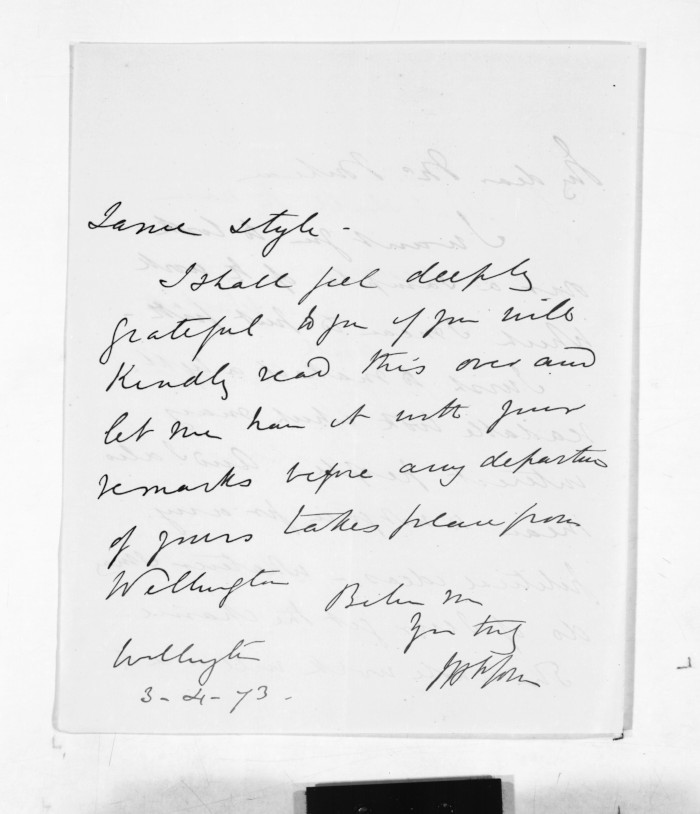 same style -
I shall feel deeply
grateful to you if you will
Kindly read this over and
let me have it with your
remarks before any departure
of yours takes place from
Wellington
Believe me
Yrs truly
Wellington
3-4-73.